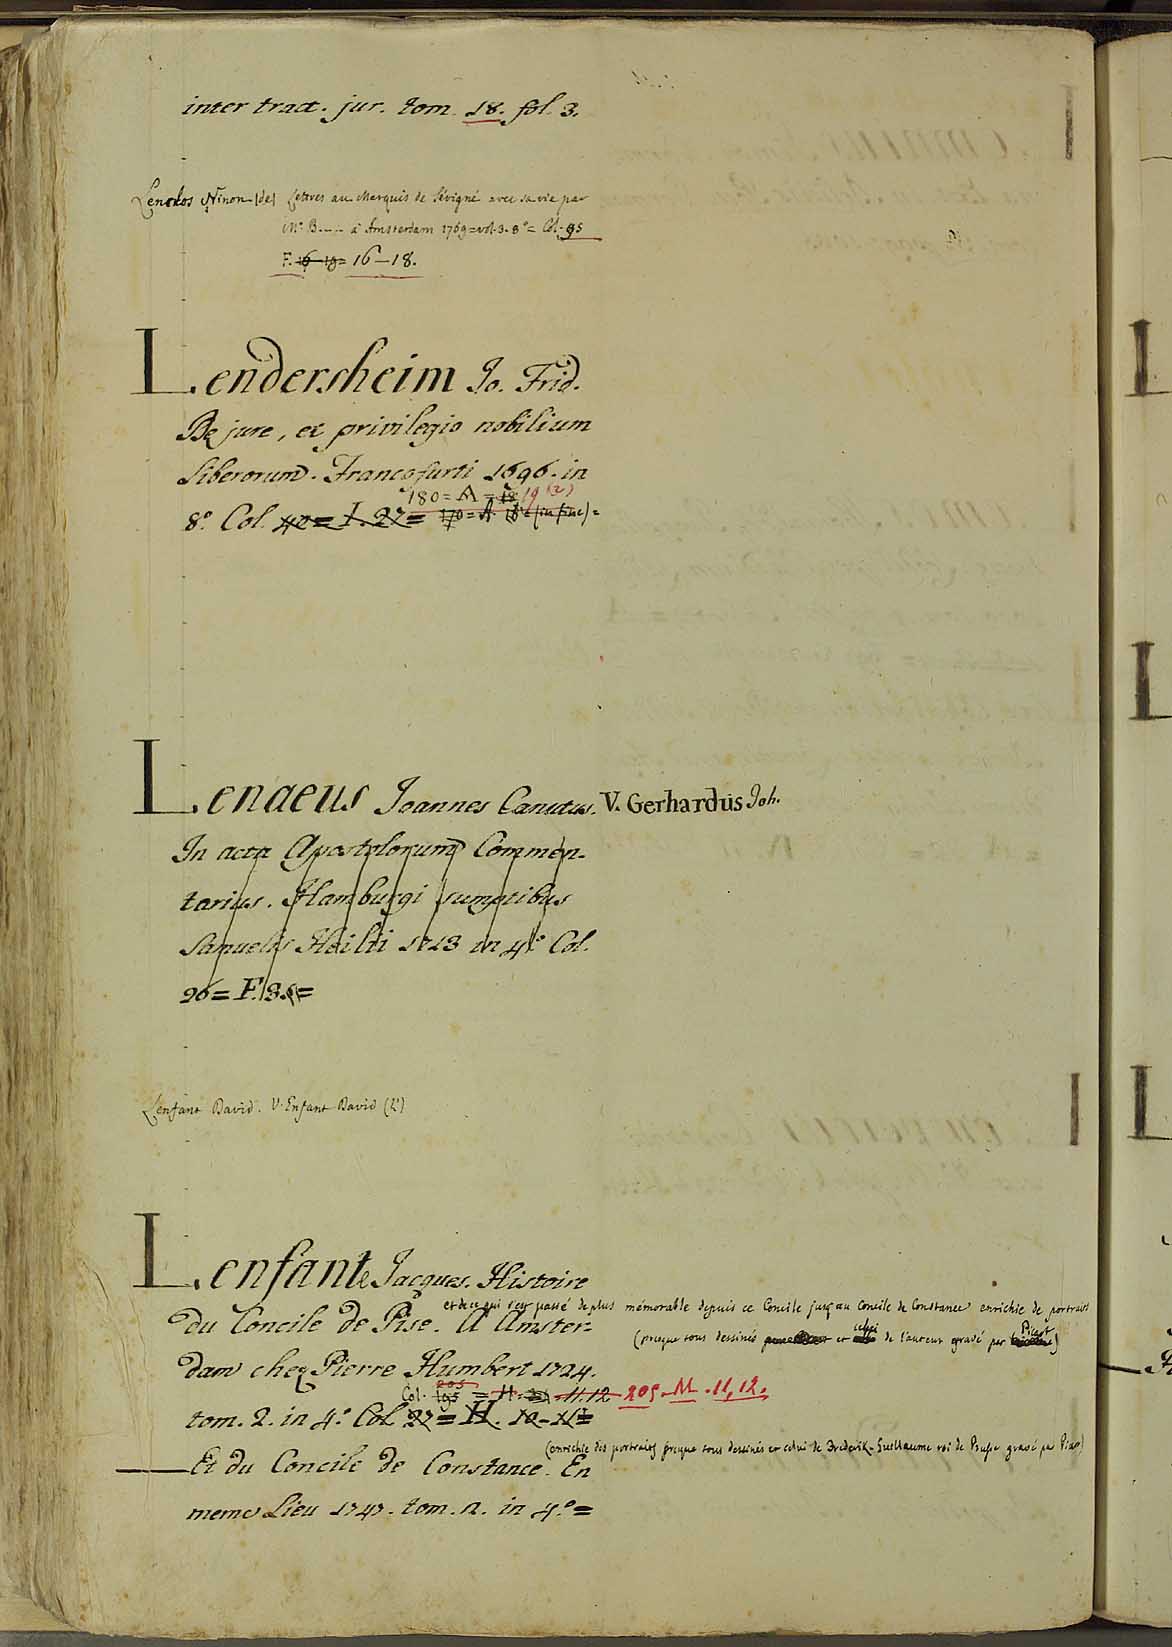 inter tract. jur. tom. 18. fol. 3.
Lenclos Ninon (de) Lettres au Marquis de Sévigné avec sa vie par
Mr. B..... à Amsterdam 1769 = vol. 3. 8° = Col. 95
F. 16-18 = 16-18.
Lendersheim Jo. Frid.
De jure, et privilegio nobilium
Liberorum. Francofurti 1696. in
180 = A = 18 19 (2)
8°. Col. 40 = I. 27 = 170 = A. 18 = (in fine) =
Lenaeus Joannes Canutus. V. Gerhardus Joh.
In acta Apostolorum Commen-
tarius. Hamburgi sumptibus
Samuelis Heilii 1713 in 4°. Col.
96 = F. 8. =
L'enfant David. V. Enfant David (L')
Lenfant Jacques. Histoire
et de ce qui s'est passé de plus mémorable depuis ce Concile jusq'au Concile de Constance enrichie de portraits
du Concile de Pise. A Amster-
(presque tous dessinés et celui de l'auteur gravé par Picart)
dam chez Pierre Humbert 1724.
205
Col. 195 = H = 11.12 205. M. 11, 12.
tom. 2. in 4°. Col. 27 = H. 10-11 =
(enrichie des portraits presque tous dessinés et celui de Frederik-Guillaume roi de Prusse gravé pa Picar)
Et du Concile de Constance. En
meme Lieu 1727. tom. 2. in 4°. =